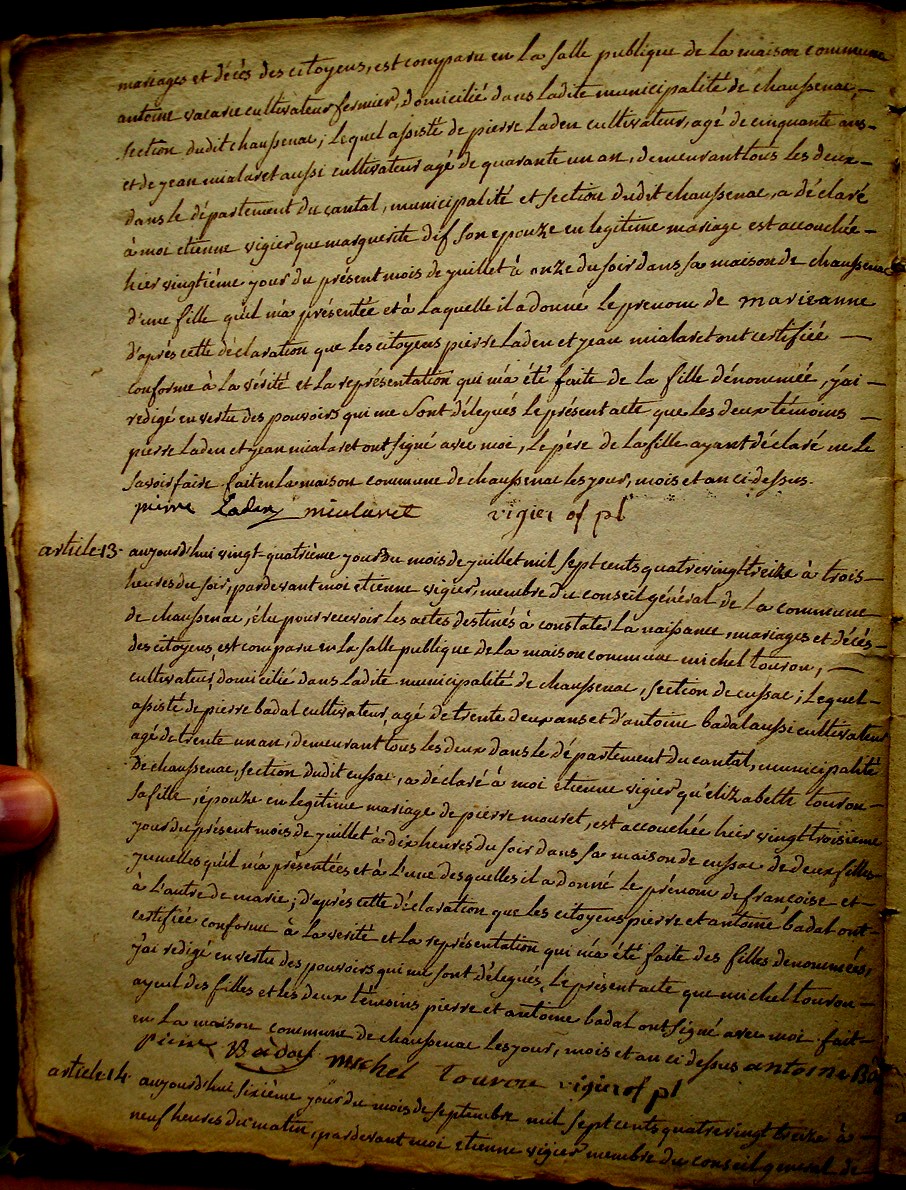 mariages et décès des citoyens, est comparu en la salle publique de la maison commune
antoine vacarie cultivateur fermier, domicilié dans ladite municipalité de chaussenac,
section dudit chaussenac; lequel assisté de pierre Laden cultivateur, agé de cinquante ans
et de jean mialaret aussi cultivateur agé de quarante un an, demeurant tous les deux
dans le département du cantal, municipalité et section dudit chaussenac, a déclaré
à moi etienne vigier que marguerite dif son epouze en legitime mariage est accouchée
hier vingtième jour du présent mois de juillet à onze du soir dans sa maison de chaussenac
d'une fille qu'il m'a présentée et à laquelle il a donné le prenom de marieanne
d'après cette déclaration que les citoyens pierre Laden et jean mialaret ont certifiée
conforme à la vérité et la représentation qui m'a été faite de la fille dénommée, j'ai
redigé en vertu des pouvoirs qui me sont délegués le présent acte que les deux témoins
pierre Laden et jean mialaret ont signé avec moi, le père de la fille ayant déclaré ne le
savoir faire. fait en la maison commune de chaussenac les jour, mois et an ci-dessus.
pierre Laden mialaret vigier of pl
article 13. aujourd'hui vingt-quatrième jour du mois de juillet mil sept cents quatrevingt treize à trois
heures du soir, pardevant moi etienne vigier, membre du conseil général de la commune
de chaussenac, élu pour recevoir les actes destinés à constater la naissance, mariages et décès
des citoyens, est comparu en la salle publique de la maison commune michel touron,
cultivateur, domicilié dans ladite municipalité de chaussenac, section de cussac; lequel
assisté de pierre badal cultivateur, agé de trente deux ans et d'antoine badal aussi cultivateur
agé de trente un an, demeurant tous les deux dans le département du cantal, municipalité
de chaussenac, section dudit cussac, a déclaré à moi etienne vigier qu'elizabeth touron
sa fille, épouze en legitime mariage de pierre mouret, est accouchée hier vingt troisieme
jour du présent mois de juillet à dix heures du soir dans sa maison de cussac de deux filles
jumelles qu'il m'a présentées et à l'une desquelles il a donné le prénom de francoise et
à l'autre de marie; d'après cette déclaration que les citoyens pierre et antoine badal ont
certifiée conforme à la verité et la représentation qui m'a été faite des filles denommées,
j'ai redigé en vertu des pouvoirs qui me sont délegués, le présent acte que michel touron
ayeul des filles et les deux témoins pierre et antoine badal ont signé avec moi fait
en la maison commune de chaussenac les jour, mois et an ci dessus antoine Bad
pierre Badal michel Touron vigier of pl
article 14. aujourd'hui sixième jour du mois de septembre mil sept cents quatrevingt treize à
neuf heures du matin, pardevant moi etienne vigier membre du conseil general de